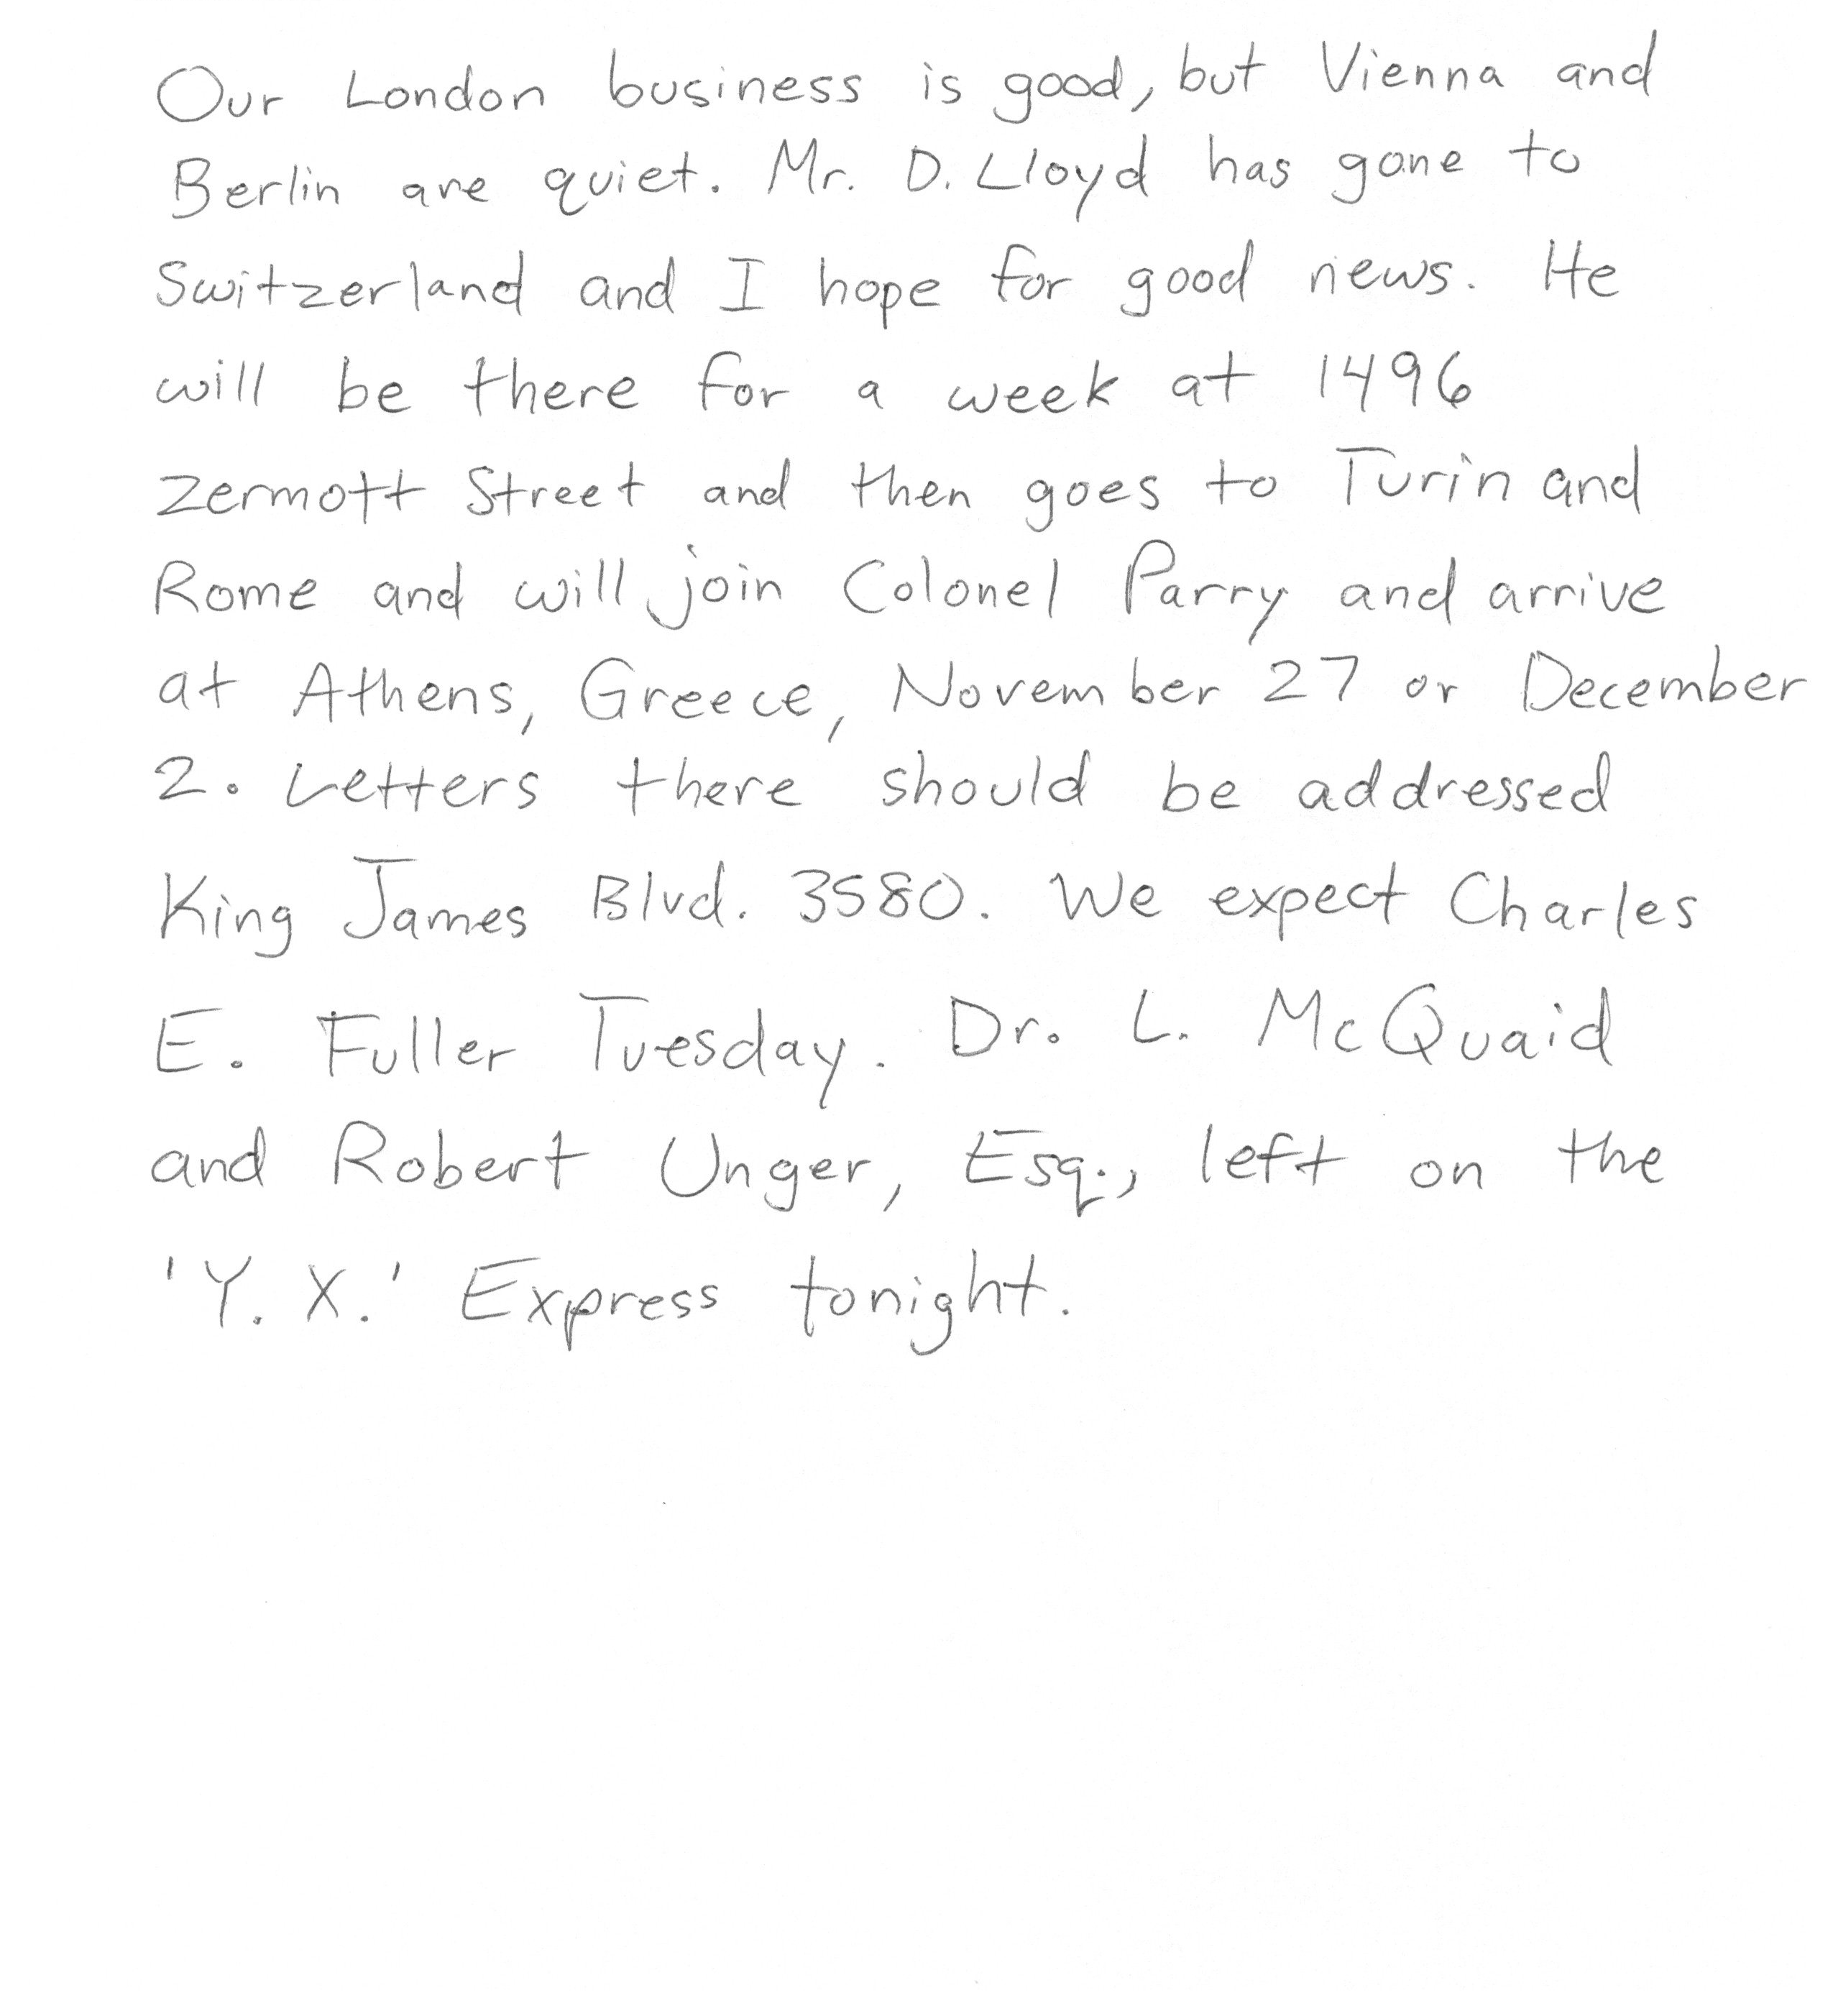 Our London business is good, but Vienna and
Berlin are quiet. Mr. D. Lloyd has gone to
Switzerland and I hope for good news. He
will be there for a week at 1496
Zermott Street and then goes to Turin and
Rome and will join Colonel Parry and arrive
at Athens, Greece, November 27 or December
2. Letters there should be addressed
King James Blvd. 3580. We expect Charles
E. Fuller Tuesday. Dr. L. McQuaid
and Robert Unger, Esq., left on the
'Y. X.' Express tonight.